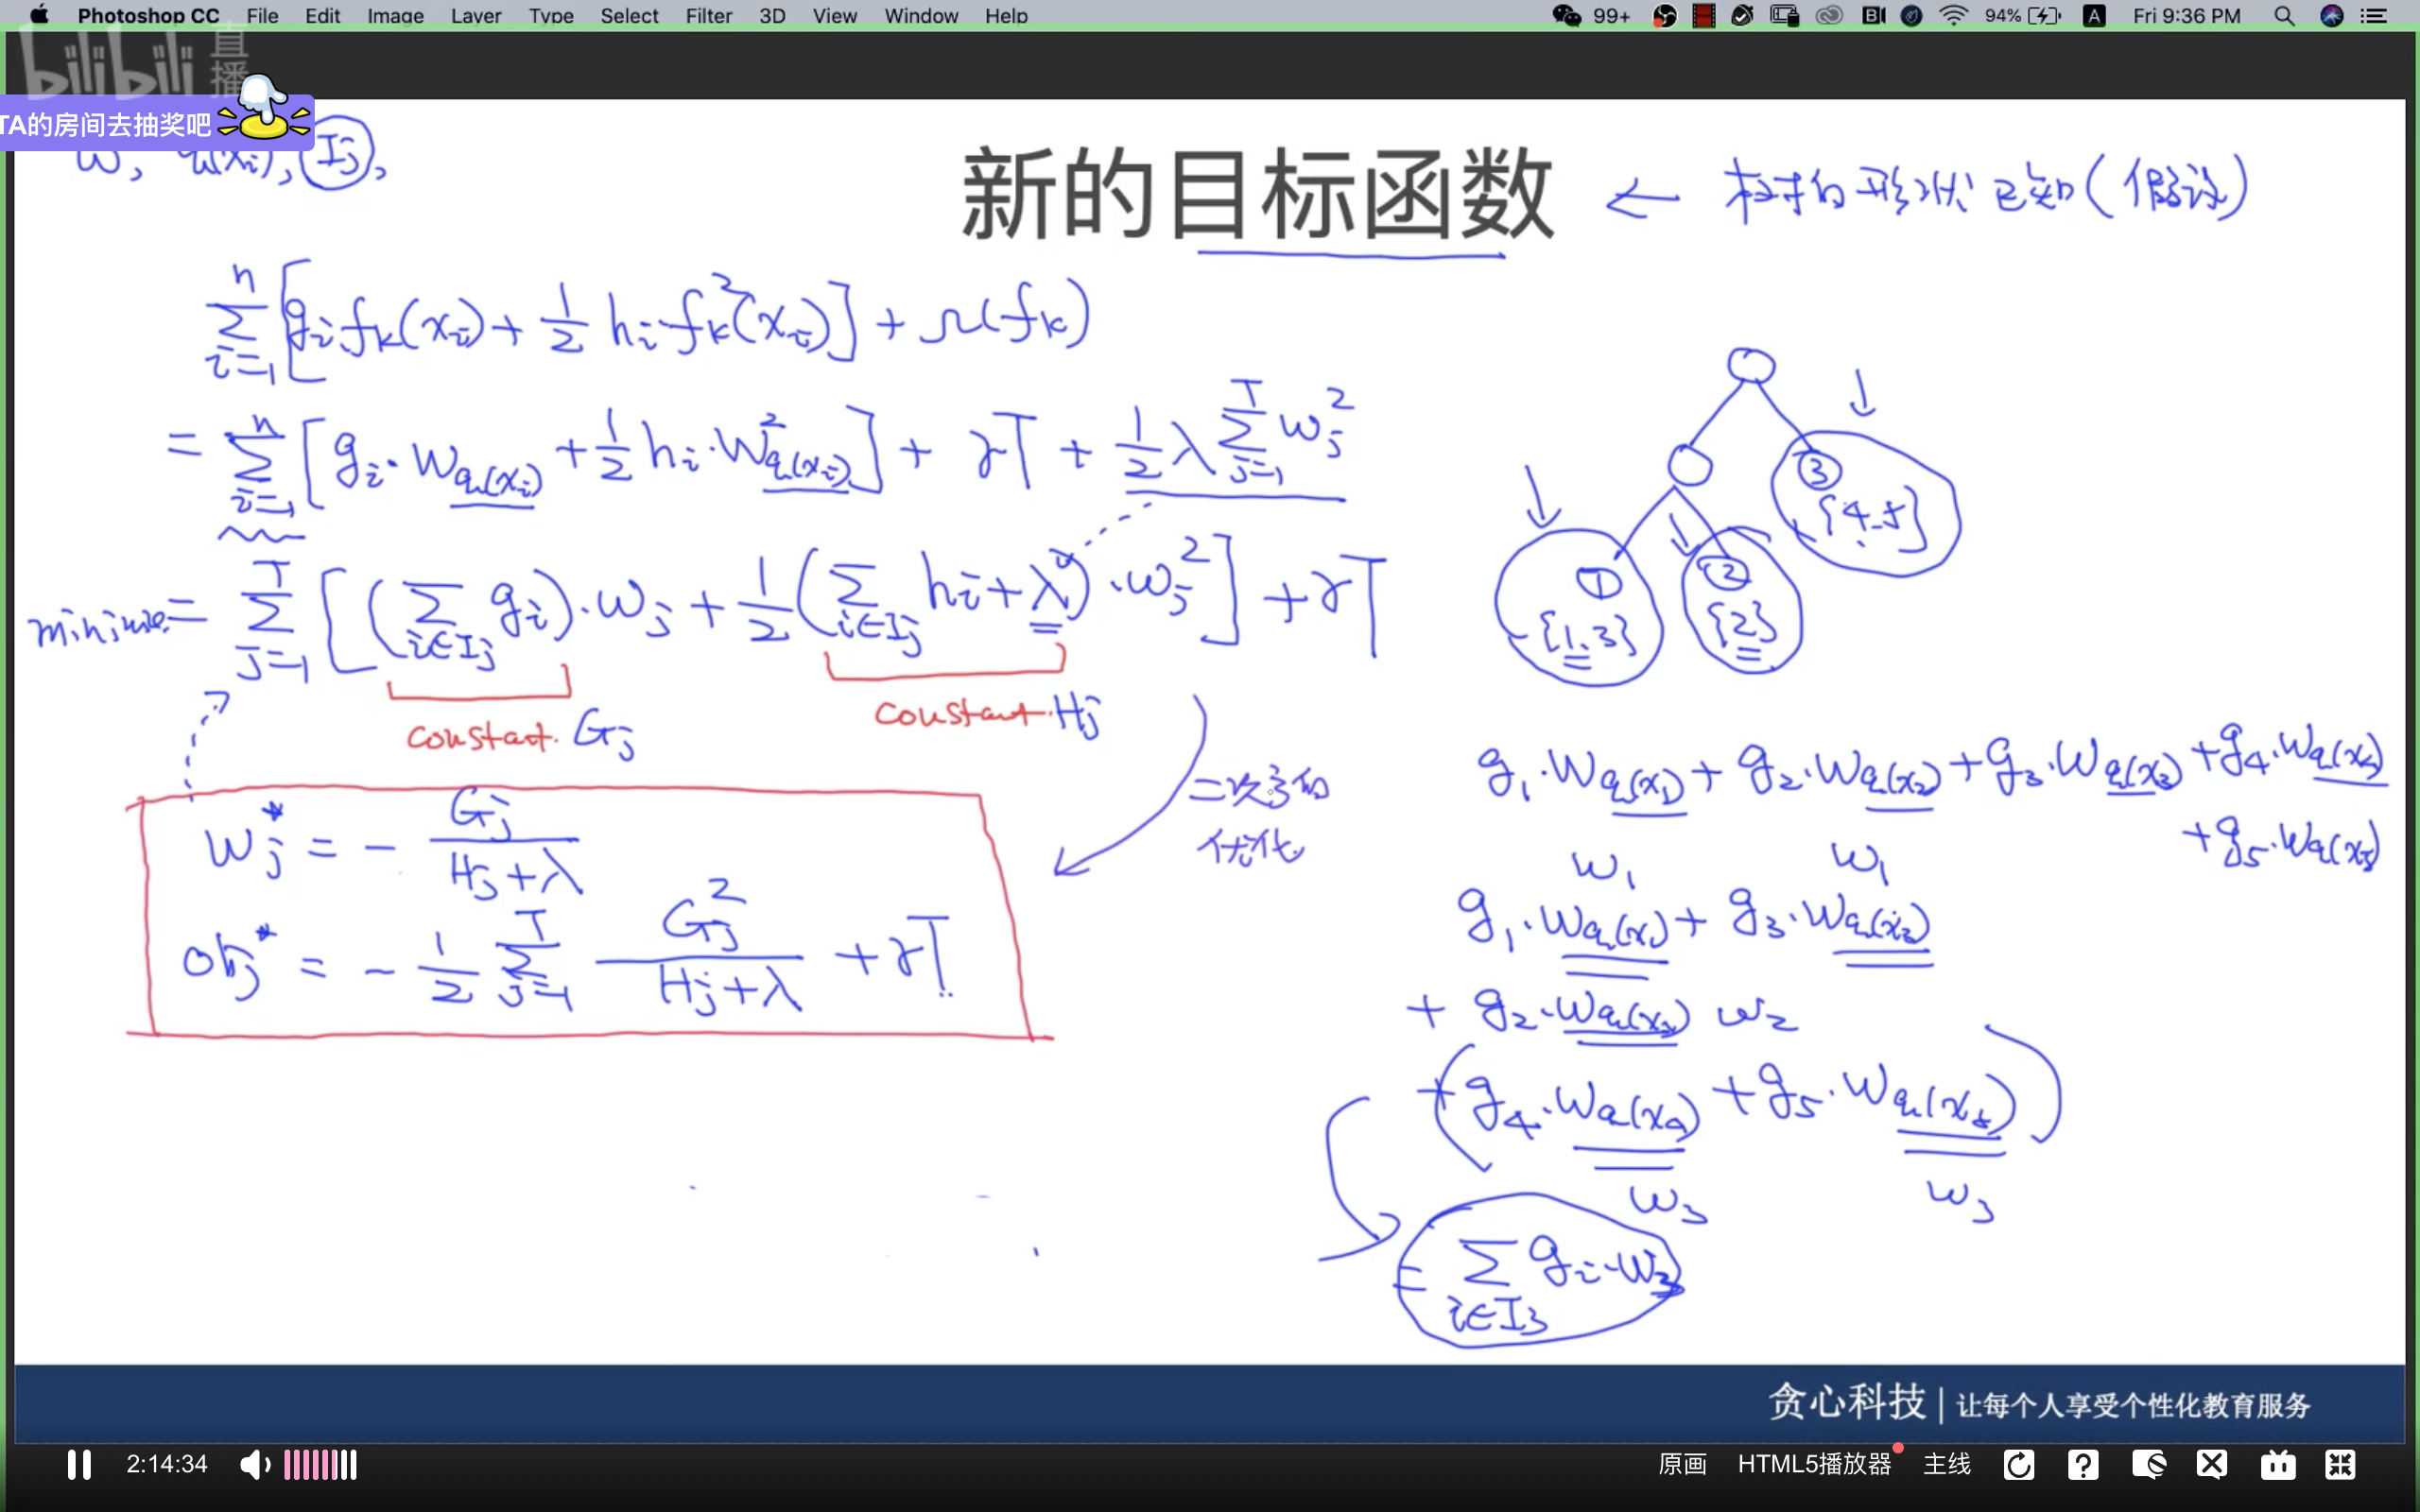 Photoshop CC File Edit Image Layer Type Select Filter 3D View Window Help 99+ 94% A Fri 9:36 PM
bilibili 直播
TA的房间去抽奖吧
w, q(xᵢ), Iⱼ,
新的目标函数 ← 树的形状已知(假设)
∑ᵢ₌₁ⁿ [gᵢ fₖ(xᵢ) + 1/2 hᵢ·fₖ²(xᵢ)] + Ω(fₖ)
= ∑ᵢ₌₁ⁿ [gᵢ·w_q(xᵢ) + 1/2 hᵢ·w²_q(xᵢ)] + γT + 1/2 λ ∑ⱼ₌₁ᵀ wⱼ²
= ∑ⱼ₌₁ᵀ [(∑_{i∈Iⱼ} gᵢ)·wⱼ + 1/2 (∑_{i∈Iⱼ} hᵢ + λ)·wⱼ²] + γT
constant. Gⱼ
constant. Hⱼ
二次函数的
优化
wⱼ* = - Gⱼ / (Hⱼ + λ)
obj* = - 1/2 ∑ⱼ₌₁ᵀ Gⱼ² / (Hⱼ + λ) + γT
③
{4.5}
① ②
{1.3} {2}
g₁·w_q(x₁) + g₂·w_q(x₂) + g₃·w_q(x₃) + g₄·w_q(x₄)
+ g₅·w_q(x₅)
w₁ w₁
g₁·w_q(x₁) + g₃·w_q(x₃)
+ g₂·w_q(x₂) w₂
+ (g₄·w_q(x₄) + g₅·w_q(x₅))
w₃ w₃
= ∑_{i∈I₃} gᵢ·w₃
贪心科技 | 让每个人享受个性化教育服务
2:14:34 原画 HTML5播放器 主线